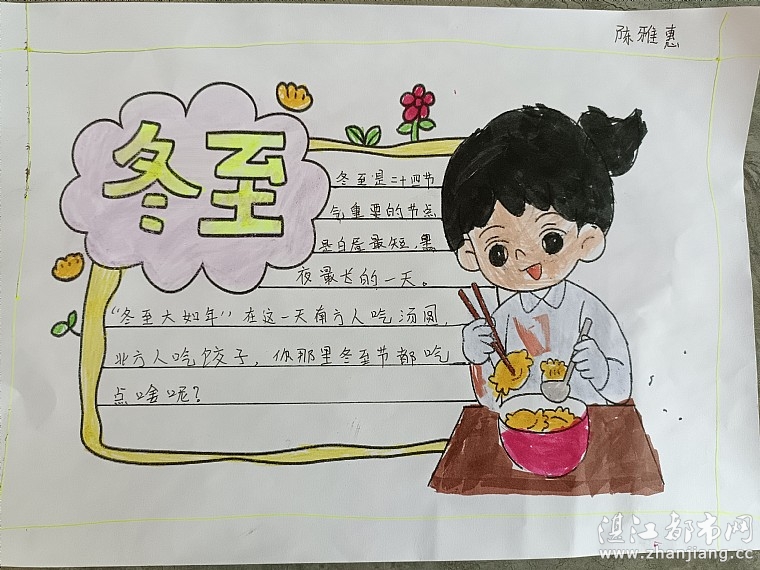 陈雅惠
冬至
冬至是二十四节
气重要的节点
是白昼最短，黑
夜最长的一天。
“冬至大如年”在这一天南方人吃汤圆，
北方人吃饺子，你那里冬至节都吃
点啥呢？
湛江都市网
www.zhanjiang.cc